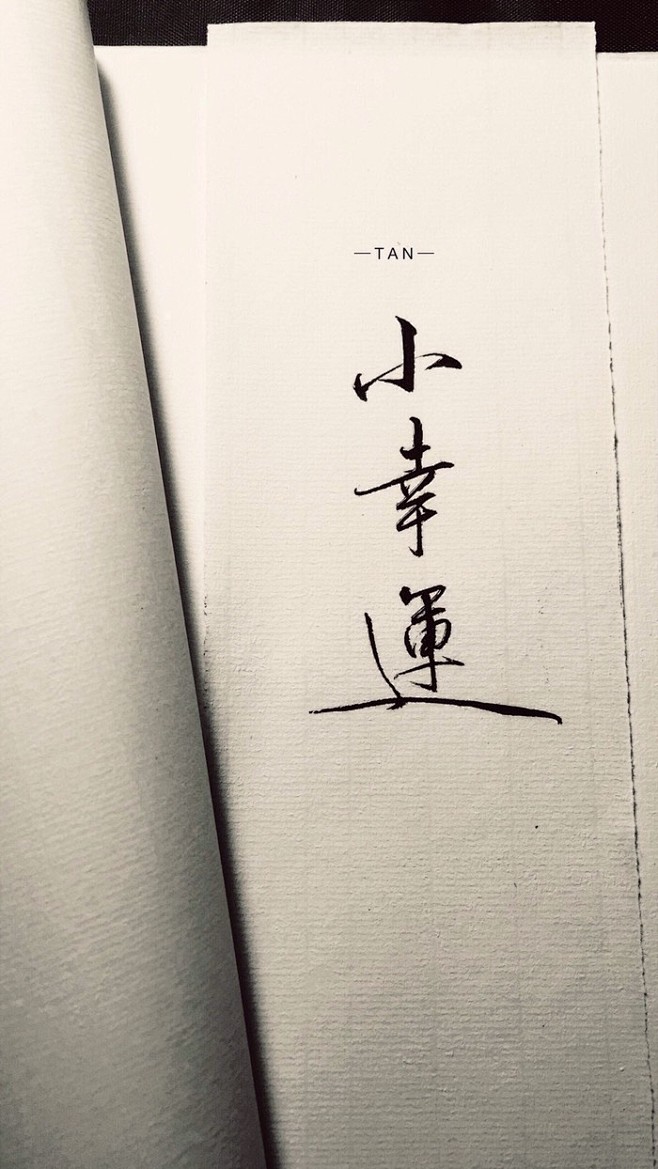 —TAN—
小幸運